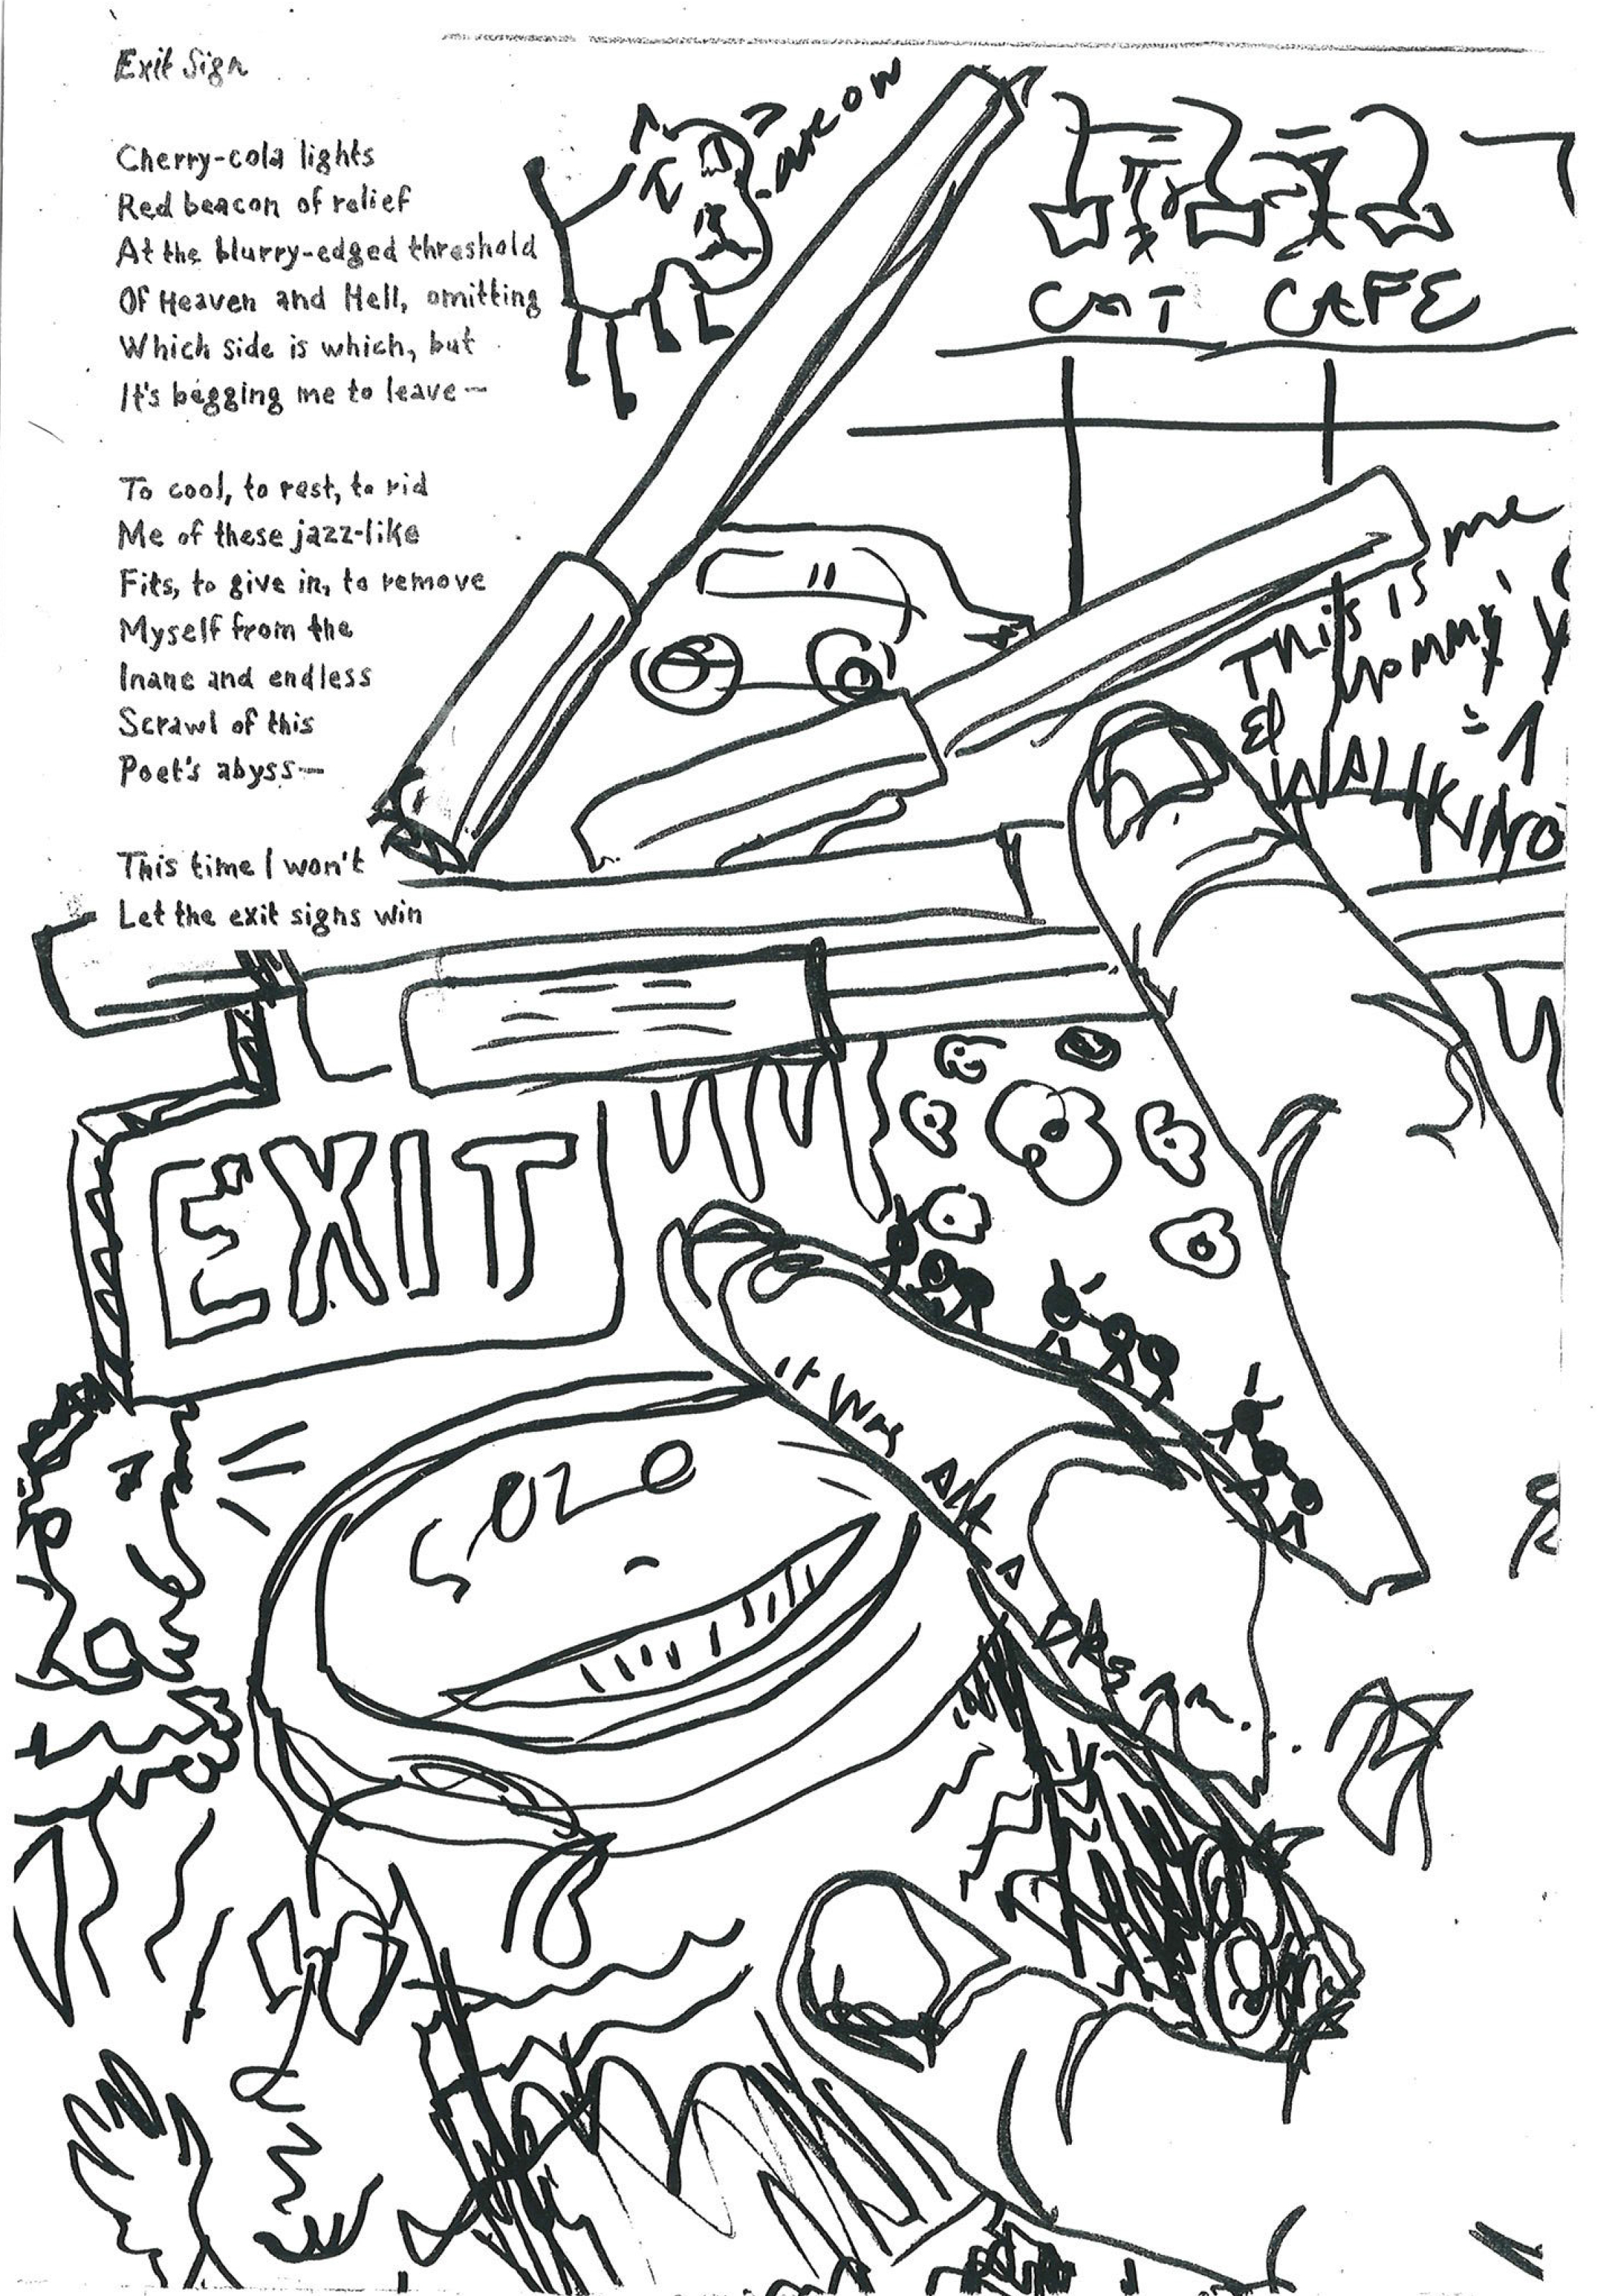 Exit Sign
Cherry-cola lights
Red beacon of relief
At the blurry-edged threshold
Of Heaven and Hell, omitting
Which side is which, but
It's begging me to leave—
To cool, to rest, to rid
Me of these jazz-like
Fits, to give in, to remove
Myself from the
Inane and endless
Scrawl of this
Poet's abyss—
This time I won't
Let the exit signs win
CAT CAFE
THis is me
WALKING
EXIT
it Was